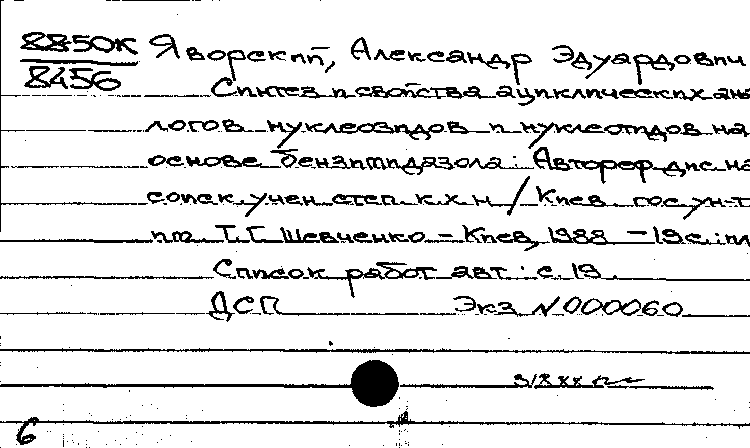 8850к Яворский, Александр Эдуардович
8456
Синтез и свойства ациклических ана
логов нуклеозидов и нуклеотидов на
основе бензимидазола: Автореф дис на
соиск. учен. степ. к.х.н / Киев. гос ун-т
им. Т.Г. Шевченко – Киев, 1988 – 19с.: ил
Список работ авт: с. 19.
ДСП Экз N000060
6